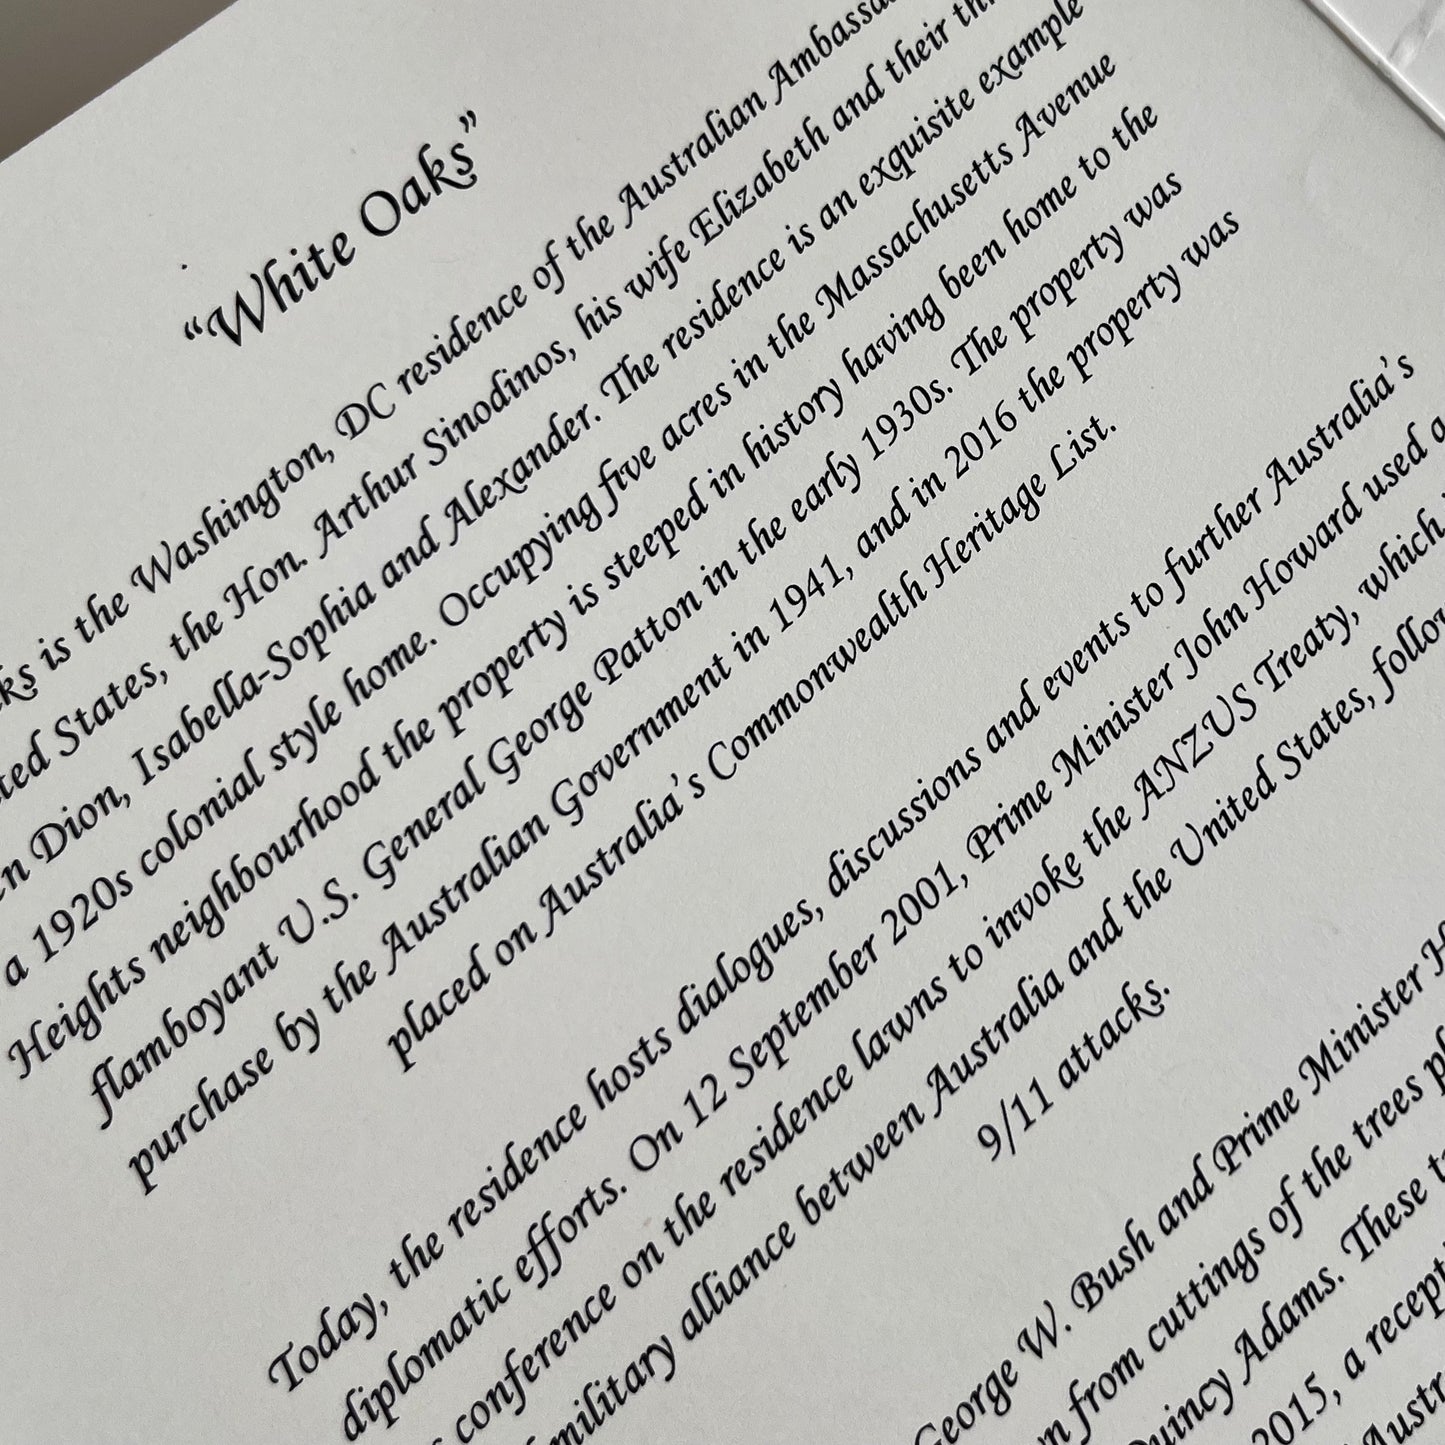 “White Oaks”
is the Washington, DC residence of the Australian
States, the Hon. Arthur Sinodinos, his wife Elizabeth and their
Dion, Isabella-Sophia and Alexander. The residence is an exquisite example
a 1920s colonial style home. Occupying five acres in the Massachusetts Avenue
Heights neighbourhood the property is steeped in history having been home to the
flamboyant U.S. General George Patton in the early 1930s. The property was
purchase by the Australian Government in 1941, and in 2016 the property was
placed on Australia’s Commonwealth Heritage List.
Today, the residence hosts dialogues, discussions and events to further Australia’s
diplomatic efforts. On 12 September 2001, Prime Minister John Howard used a
conference on the residence lawns to invoke the ANZUS Treaty, which
military alliance between Australia and the United States,
9/11 attacks.
George W. Bush and Prime Minister
from cuttings of the trees
Quincy Adams. These
2015, a